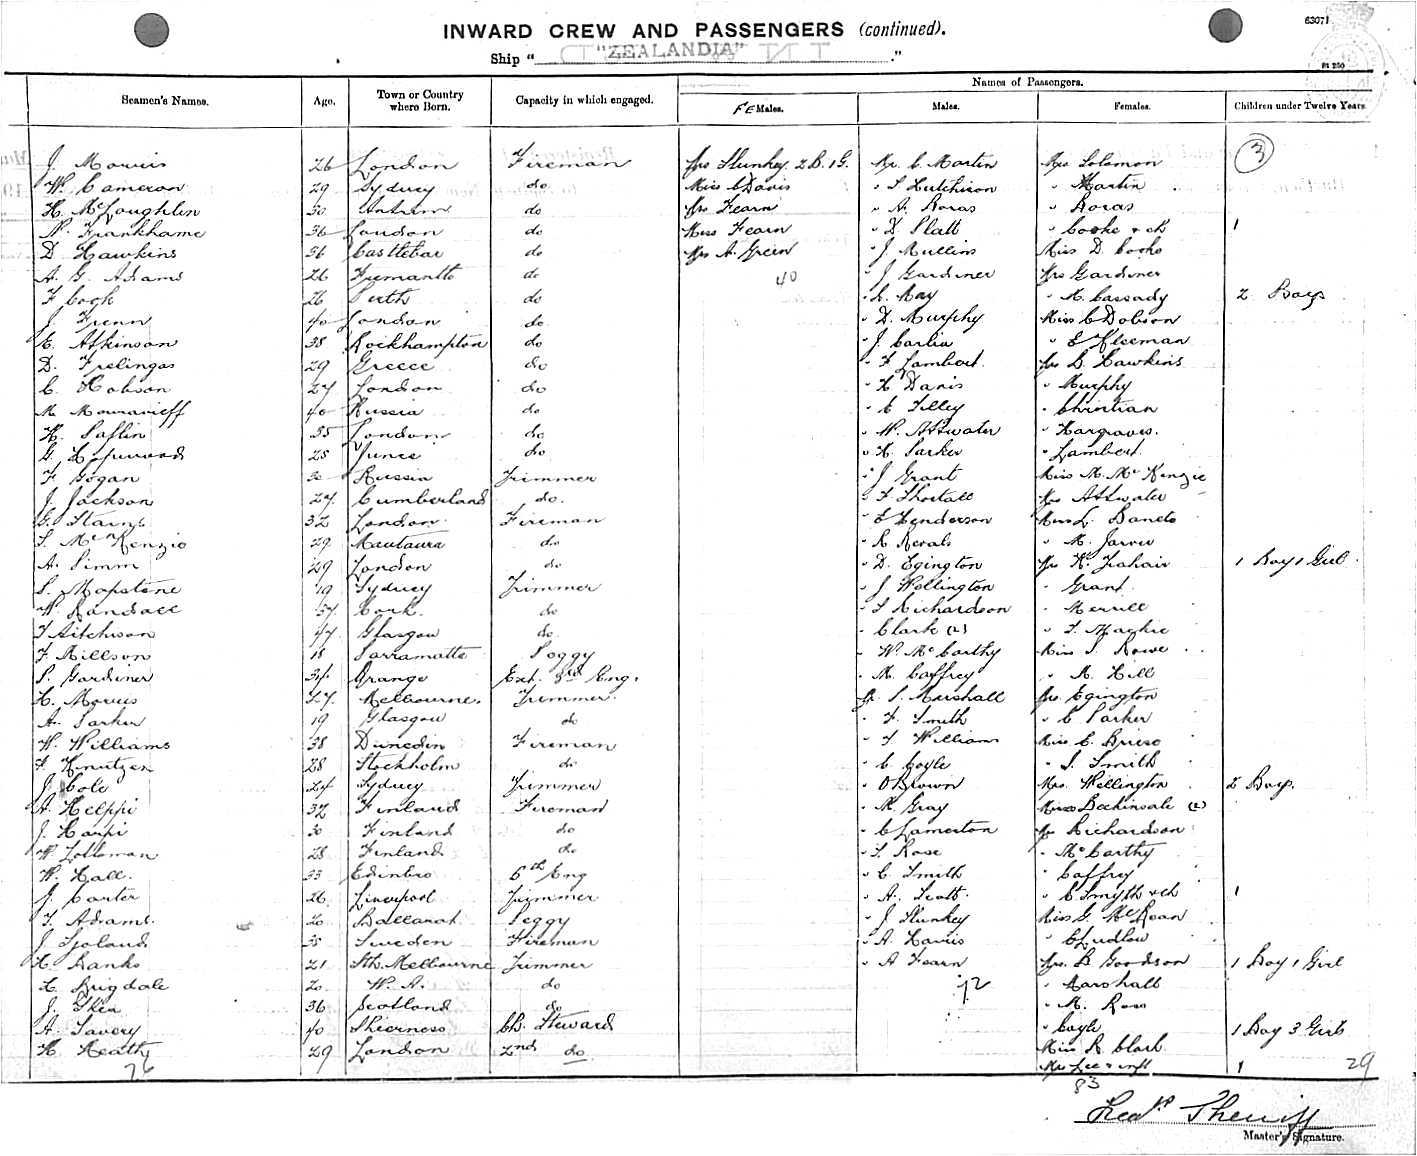 63071
INWARD CREW AND PASSENGERS (continued).
Ship " "ZEALANDIA" ."
Seamen's Names. Age. Town or Country where Born. Capacity in which engaged. Names of Passengers.
FEMales. Males. Females. Children under Twelve Years
3
J. 26 London Fireman Mrs Slunkey 2 B. 1 G. Mr. C. Martin Mrs Solomon
W. Cameron 29 Sydney do Miss C Davis " S Hutchison " Martin
H. McLoughlin 30 Antrim do Mrs Fearn " A. Boras " Boras
N. Frankhame 36 London do Miss Fearn " D Platt " Cooke + ch 1
D Hawkins 36 Castlebar do Mrs A. Green " J. Mullins Miss D Cooke
A. G. Adams 26 Fremantle do 40 " J Gardiner Mrs Gardiner
F Cook 26 Perth do " L. May " M. Cassady 2 Boys
J. Frenn 40 London do " D. Murphy Miss C Dobson
E. Atkinson 38 Rockhampton do " J. Carlia " E Fleeman
D. Frelingos 29 Greece do " F Lambert Mrs L. Hawkins
C. Hobson 27 London do " H Davis " Murphy
M. Mouravieff 40 Russia do " C Tilley " Christian
H. Saflin 35 London do " W. Attwater " Hargraves.
G. 25 do " H. Parker " Lambert
F Gogan 30 Russia Trimmer " J Grant Miss M. McKenzie
J. Jackson 27 Cumberland do. " F Shortall Mrs Attwater
G. Stains 32 London Fireman " E Henderson Miss L.
S. McKenzie 29 do " R Revals " M. Jarvis
A. Simm 29 London do " D. Egington Mrs K. Trahair 1 Boy 1 Girl
S. Mapstone 19 Sydney Trimmer " J. Wellington " Grant
W. Randall 37 Cork do " S Richardson " Merrill
T Aitchison 47 Glasgow do " Clark (2) " T. Mackie
F. Millson 18 Parramatta Peggy " W. McCarthy Miss S. Rowe
S. Gardiner 34 Orange Ext. 3rd Eng. " M. Caffrey " M. Hill
H. Morris 27 Melbourne. Trimmer. Mr. S. Marshall Mrs Egington
A. Parker 19 Glasgow do " F. Smith " C Parker
W. Williams 38 Dunedin Fireman " T Williams Miss C.
F Knutzen 28 Stockholm do " C Coyle " S. Smith
J. Cole 24 Sydney Trimmer " O Brown Mrs. Wellington 2 Boys.
A. Helppi 32 Finland Fireman " M. Gray Misses Beckinsale (2)
J. Harpi 30 Finland do " C Lamerton Mrs Richardson
W. 28 Finland do " S. Rose " McCarthy
W. Hall. 33 Edinbro 6th Eng " C. Smith " Caffrey
J. Carter 26 Liverpool Trimmer " A. Scott. " C Smyth + ch 1
T. Adams. 20 Ballarat Peggy " J Slunkey Miss G.
J Sjoland 35 Sweden Fireman " A. Harris " C Ludlow
H. Banks 21 Sth. Melbourne Trimmer " A Fearn Mrs. B Goodson 1 Boy 1 Girl
H. Brigdale 20 W. A. do 72 " Marshall
J. Shea 36 Scotland do " M. Ross
A. Savery 40 Shierness Ch. Steward " Coyle 1 Boy 3 Girls
H. Heath 29 London 2nd do Miss R Clark
76 Mrs Lee + inft 1 29
83
Fredk Sherriff
Master's Signature.